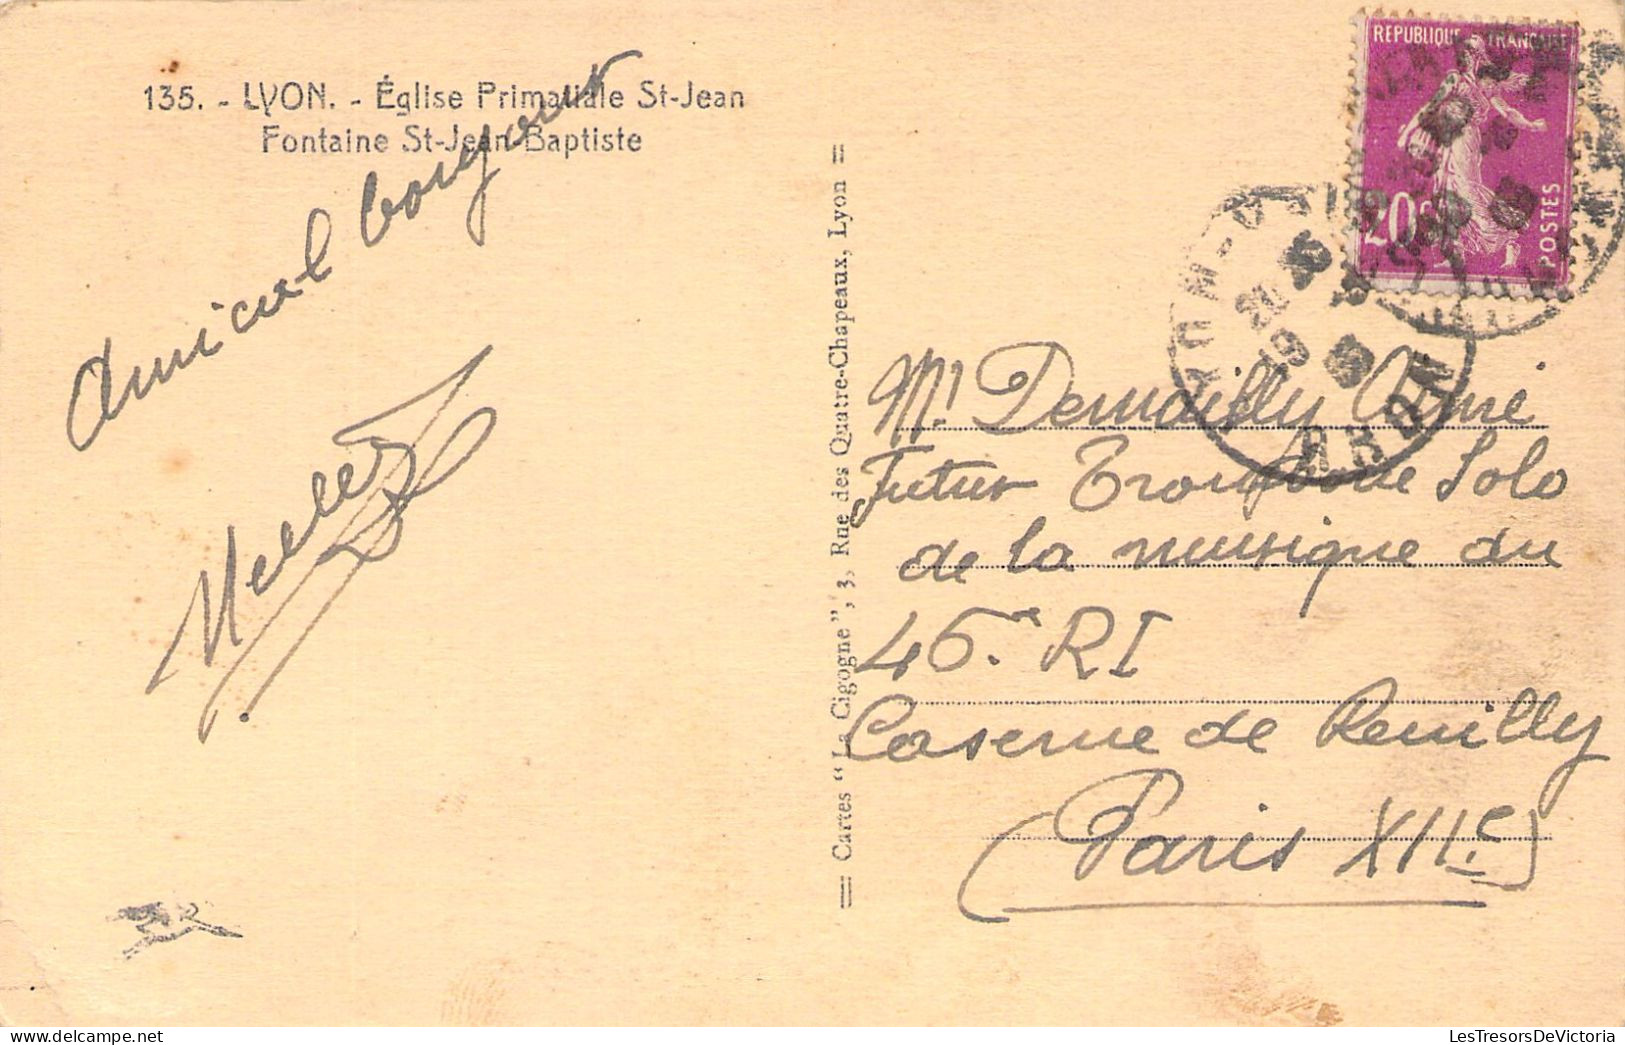 135. - LYON. - Église Primatiale St-Jean
Fontaine St-Jean Baptiste
Amical bonjour
= Cartes "La Cigogne", 3, Rue des Quatre-Chapeaux, Lyon =
REPUBLIQUE FRANÇAISE
20c
POSTES
RHONE
Mr Demailly Aimé
Futur Trombone Solo
de la musique du
46e RI
Caserne de Reuilly
(Paris XIIe)
LesTresorsDeVictoria